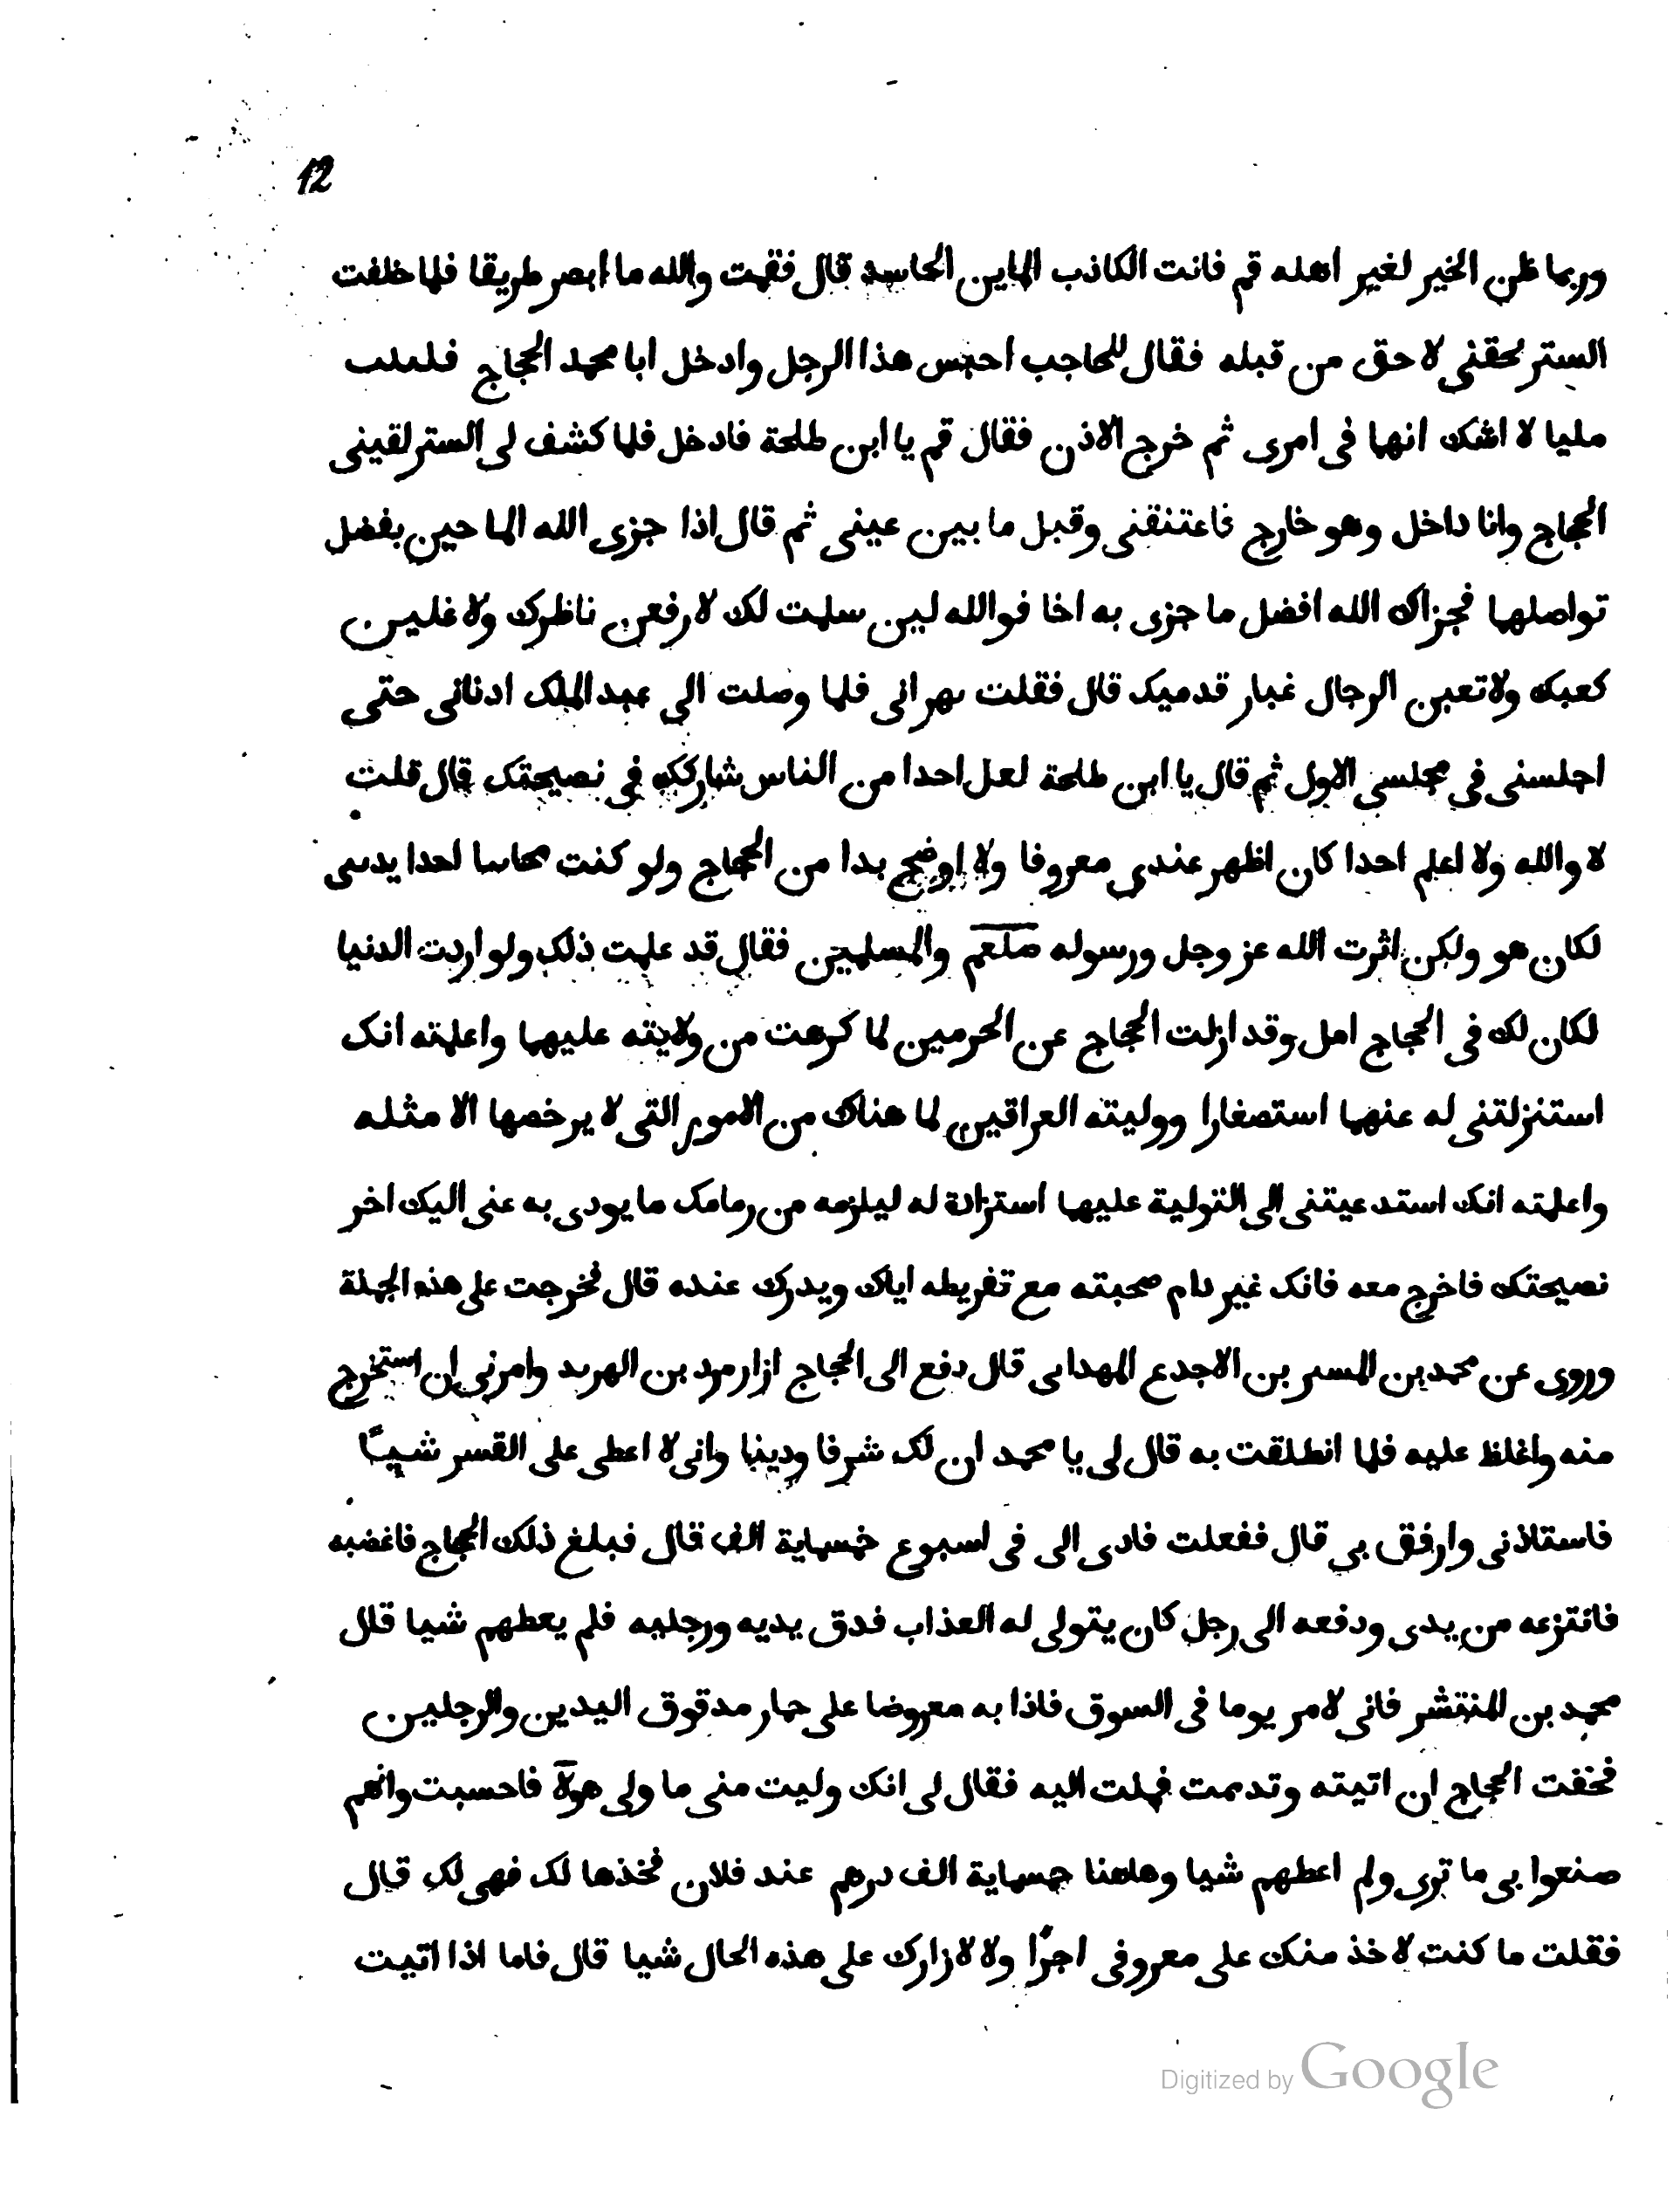 12
وربما ظن الخير لغير اهله قم فانت الكاذب الماين الحاسد قال فقمت والله ما ابصر طريقا فلما خلفت
الستر لحقنى لاحق من قبله فقال للحاجب احبس هذا الرجل وادخل ابا محمد الحجاج فلبثت
مليا لا اشك انهما فى امرى ثم خرج الاذن فقال قم يا ابن طلحة فادخل فلما كشف لى الستر لقينى
الحجاج وانا داخل وهو خارج فاعتنقنى وقبل ما بين عينى ثم قال اذا جزى الله الماحين بفضل
تواصلهما فجزاك الله افضل ما جزى به اخا فوالله لين سلمت لك لارفعن ناظرك ولاعلين
كعبك ولاتعبن الرجال غبار قدميك قال فقلت يهزانى فلما وصلت الى عبد الملك ادنانى حتى
اجلسنى فى مجلسى الاول ثم قال يا ابن طلحة لعل احدا من الناس شاركك فى نصيحتك قال قلت
لا والله ولا اعلم احدا كان اظهر عندى معروفا ولا اوضح يدا من الحجاج ولو كنت محابيا احدا بدينى
لكان هو ولكن اثرت الله عز وجل ورسوله صلعم والمسلمين فقال قد علمت ذلك ولو اردت الدنيا
لكان لك فى الحجاج امل وقد ازلت الحجاج عن الحرمين لما كرهت من ولايته عليهما واعلمته انك
استنزلتنى له عنهما استصغارا ووليته العراقين لما هناك من الامور التى لا يرخصها الا مثله
واعلمته انك استدعيتنى الى التولية عليهما استزادة له ليلزمه من رمامك ما يودى به عنى اليك اخر
نصيحتك فاخرج معه فانك غير دام صحبته مع تفريطه اياك ويدك عنده قال فخرجت على هذه الجملة
وروى عن محمد بن المنتشر بن الاجدع الهمدانى قال دفع الى الحجاج ازارمرد بن الهربد وامرنى ان استخرج
منه واغلظ عليه فلما انطلقت به قال لى يا محمد ان لك شرفا ودينا وانى لا اعطى على القسر شيئا
فاستاذنى وارفق بى قال ففعلت فادى الى فى اسبوع خمسماية الف قال فبلغ ذلك الحجاج فاغضبه
فانتزعه من يدى ودفعه الى رجل كان يتولى له العذاب فدق يديه ورجليه فلم يعطهم شيا قال
محمد بن المنتشر فانى لامر يوما فى السوق فاذا به معروضا على حمار مدقوق اليدين والرجلين
فخفت الحجاج ان اتيته وتدممت فملت اليه فقال لى انك وليت منى ما ولى هولا فاحسبت وانهم
صنعوا بى ما ترى ولم اعطهم شيا وهاهنا خمسماية الف درهم عند فلان فخذها لك فهى لك قال
فقلت ما كنت لاخذ منك على معروفى اجرًا ولا لازارك على هذه الحال شيا قال فاما اذا اتيت